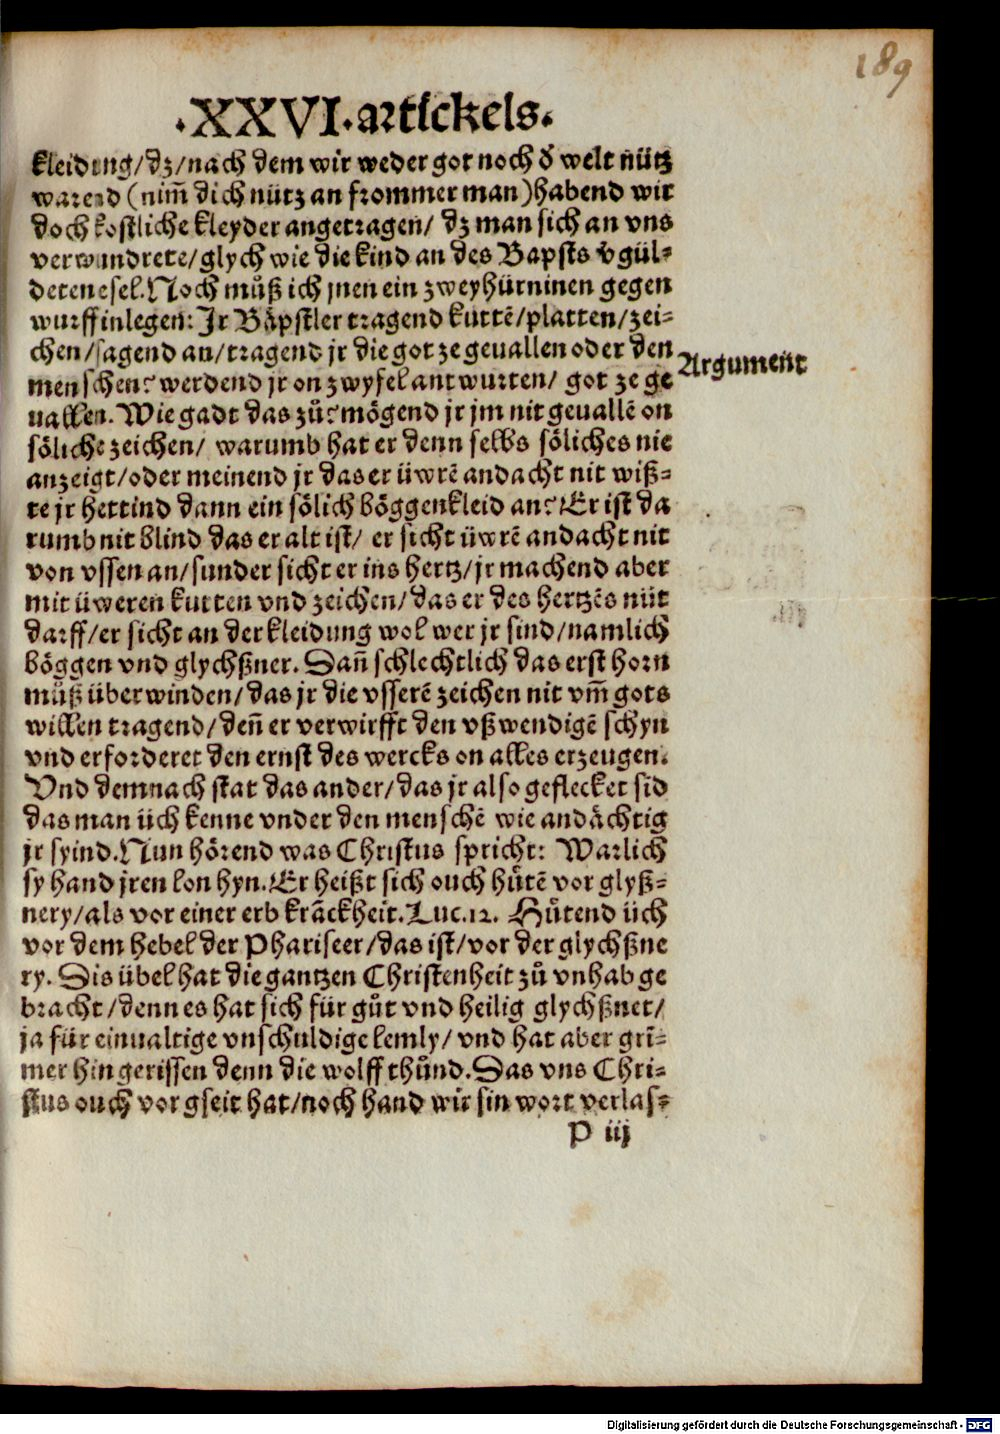 189
.XXVI.artickels.
kleidung/dz/nach dem wir weder got noch d̕ welt nütz
warend (nim̃ dich nütz an frommer man) habend wir
doch kostliche kleyder angetragen/ dz man sich an vns
verwundrete/glych wie die kind an des Bapsts v̕gül-
deten esel. Noch můß ich jnen ein zweyhürninen gegen
wurff inlegen: Jr Bäpstler tragend kuttẽ/platten/zei-
chen/sagend an/tragend jr die got ze geuallen oder den
menschen? werdend jr on zwyfel antwurten/ got ze ge
uallen. Wie gadt das zů? mögend jr jm nit geuallẽ on
söliche zeichen/ warumb hat er denn selbs söliches nie
anzeigt/oder meinend jr das er üwrẽ andacht nit wiß-
te jr hettind dann ein sölich böggenkleid an? Er ist da
rumb nit blind das er alt ist/ er sicht üwrẽ andacht nit
von vssen an/sunder sicht er ins hertz/jr machend aber
mit üweren kutten vnd zeichen/das er des hertzẽs nüt
darff/er sicht an der kleidung wol wer jr sind/namlich
böggen vnd glychßner. Dañ schlechtlich das erst horn
můß überwinden/das jr die vsserẽ zeichen nit vm̃ gots
willen tragend/deñ er verwirfft den vßwendigẽ schyn
vnd erforderet den ernst des wercks on alles erzeugen.
Vnd demnach stat das ander/das jr also geflecket sid
das man üch kenne vnder den menschẽ wie andächtig
jr syind. Nun hörend was Christus spricht: Warlich
sy hand jren lon hyn. Er heißt sich ouch hůtẽ vor glyß-
nery/als vor einer erb krãckheit. Luc.12. Hůtend üch
vor dem hebel der Phariseer/das ist/vor der glychßne
ry. Dis übel hat die gantzen Christenheit zů vnhab ge
bracht/denn es hat sich für gůt vnd heilig glychßnet/
ja für einualtige vnschuldige lemly/ vnd hat aber gri̇̃-
mer hin gerissen denn die wolff thůnd. Das vns Chri-
stus ouch vor gseit hat/noch hand wir sin wort verlas-
P iij
Argument
Digitalisierung gefördert durch die Deutsche Forschungsgemeinschaft - DFG